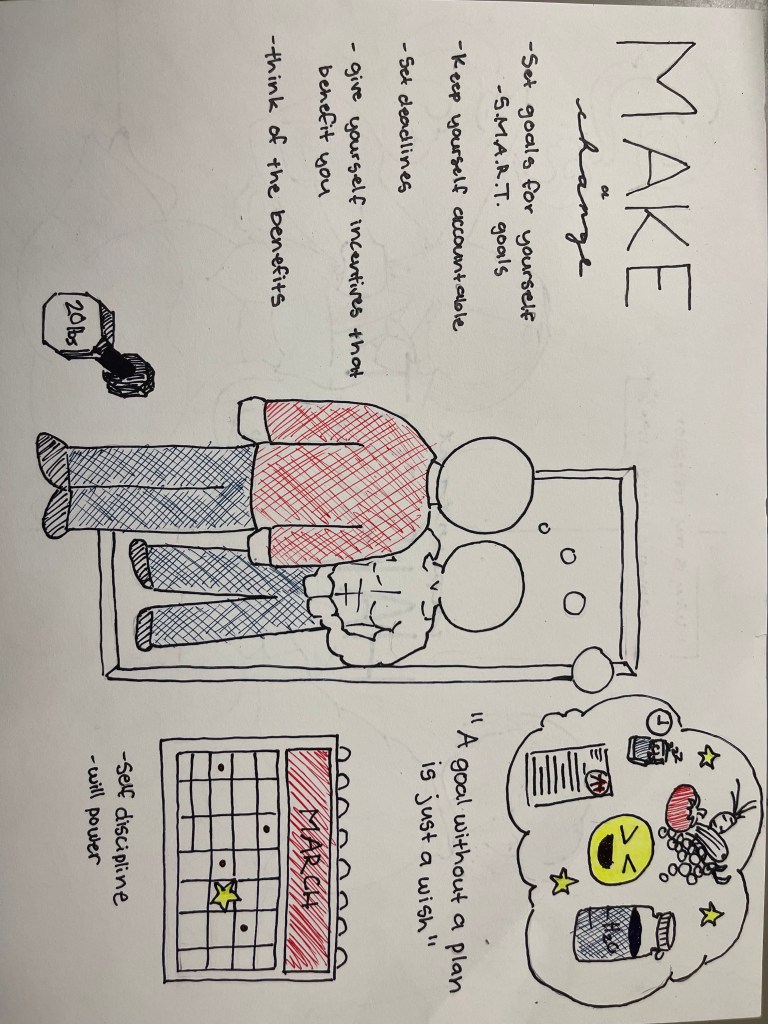 MAKE
a
change
-Set goals for yourself
-S.M.A.R.T. goals
-Keep yourself accountable
-Set deadlines
- give yourself incentives that
benefit you
-think of the benefits
20lbs
A+
H2O
"A goal without a plan
is just a wish"
MARCH
-Self discipline
-will power